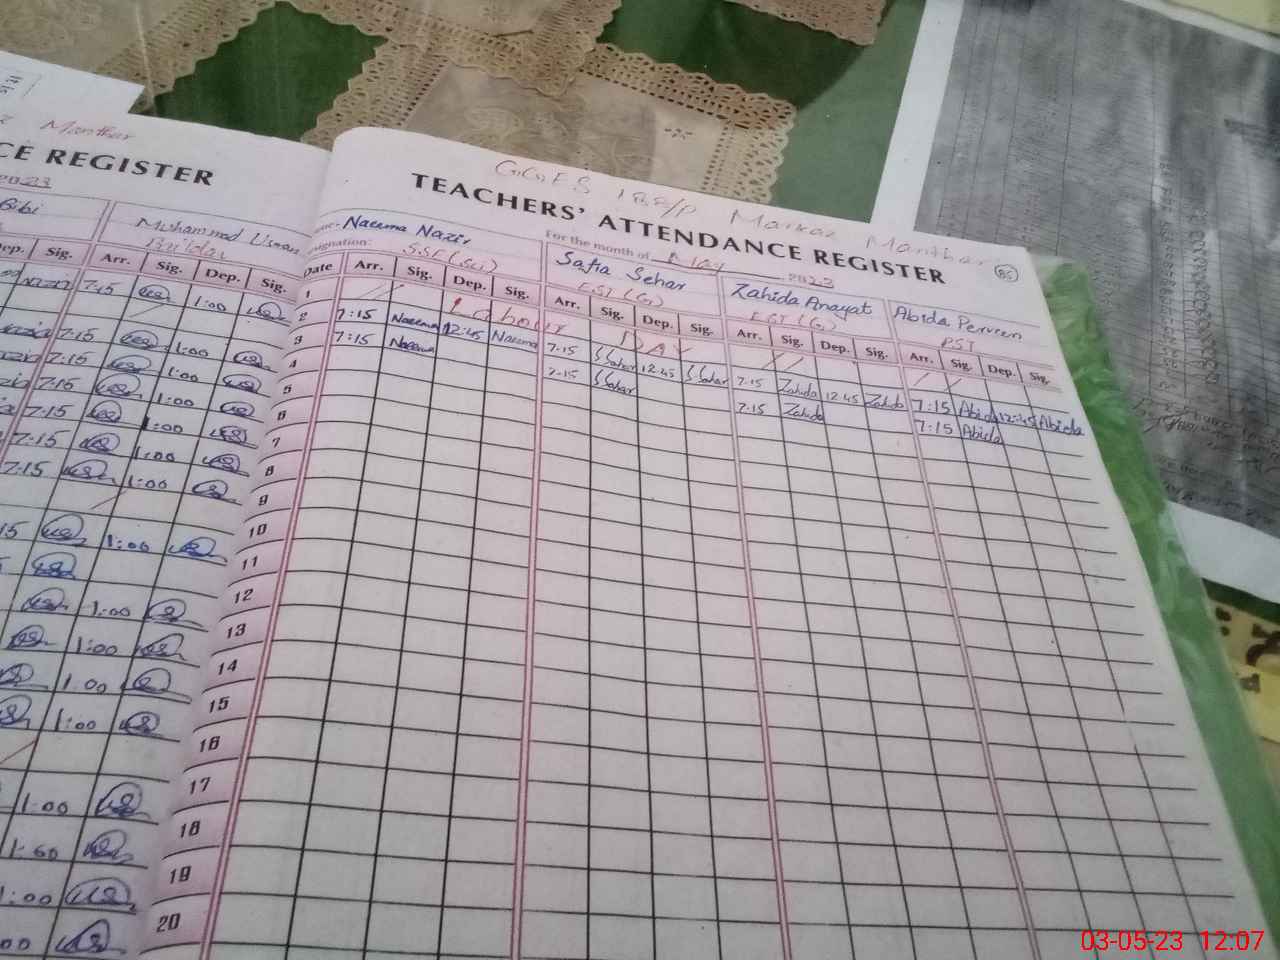 Manthar
CE REGISTER
2023
Bibi
Muhammad Usman
Dep. Sig. Arr. Sig. Dep. Sig.
7:15 1:00
7:15 1:00
7:15 1:00
7:15 1:00
7:15 1:00
7:15 1:00
7:15 1:00
15 1:00
1:00
1:00
1:00
1:00
1:00
1:00
1:00
00
GGES 188/P Markaz Manthar
TEACHERS' ATTENDANCE REGISTER
85
For the month of May 2023
Name: Naeema Nazir
Safia Sehar
Zahida Anayat
Abida Perveen
Designation: SSE (Sci)
EST (G)
EST (G)
PST
Date Arr. Sig. Dep. Sig. Arr. Sig. Dep. Sig. Arr. Sig. Dep. Sig. Arr. Sig. Dep. Sig.
1 Labour DAY
2 7:15 Naeema 12:45 Naeema 7:15 SSahar 12:45 SSahar 7:15 Zahida 12:45 Zahida 7:15 Abida 12:45 Abida
3 7:15 Naeema 7:15 SSahar 7:15 Zahida 7:15 Abida
4
5
6
7
8
9
10
11
12
13
14
15
16
17
18
19
20
03-05-23 12:07